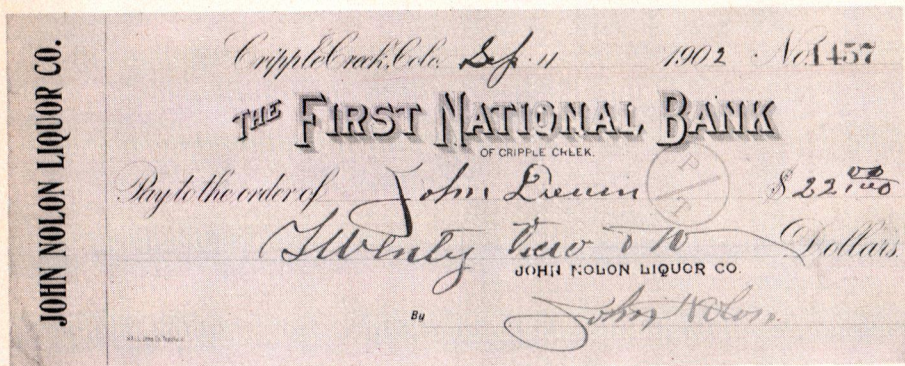 JOHN NOLON LIQUOR CO.
Cripple Creek, Colo. Sep. 11 1902 No. 1457
THE FIRST NATIONAL BANK
OF CRIPPLE CREEK.
Pay to the order of John $ 22.00
P/T
Twenty two Dollars
JOHN NOLON LIQUOR CO.
By John Nolon